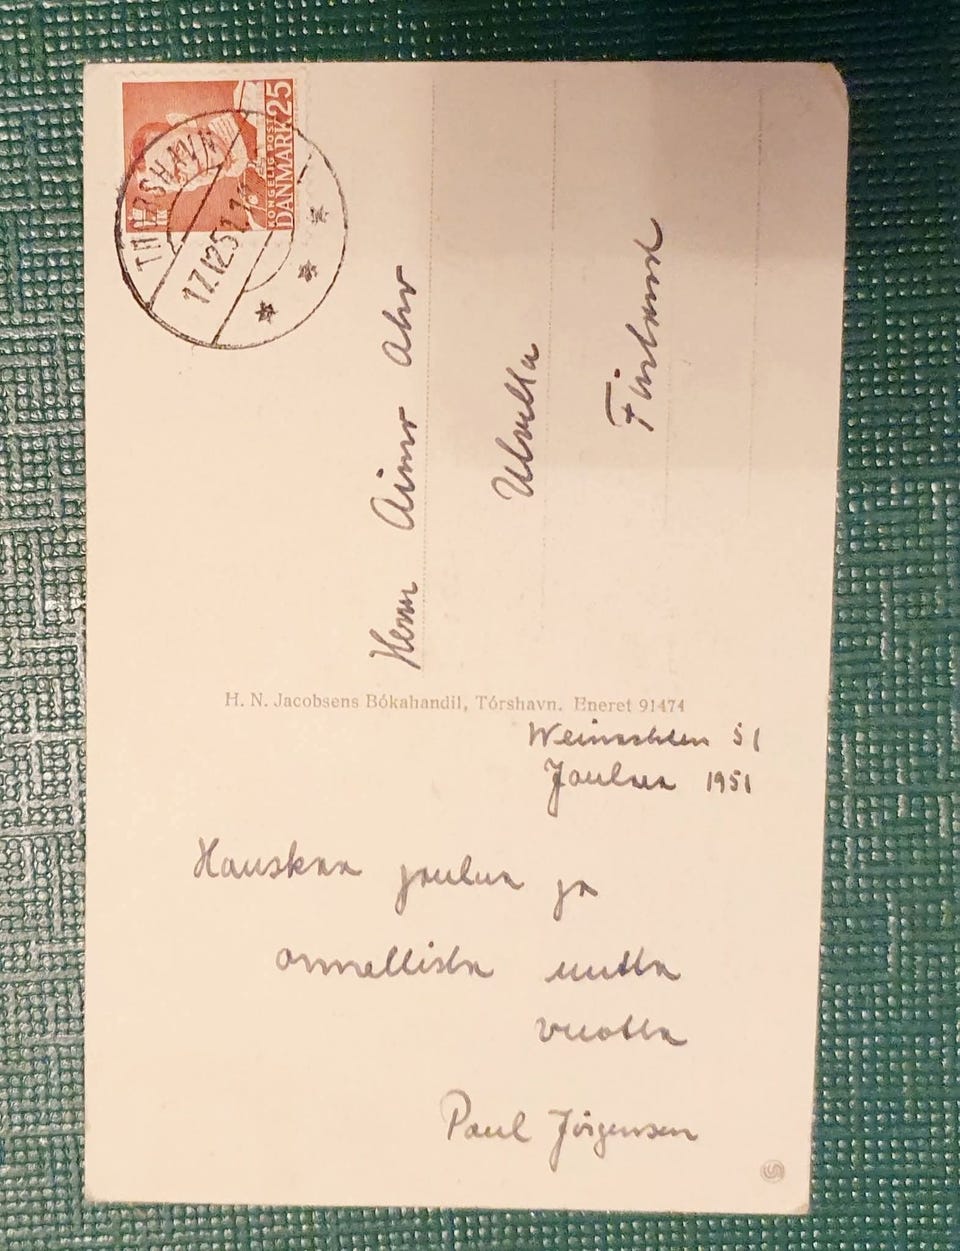 KONGELIG POST
DANMARK 25
THORSHAVN
17.12.51
Herrn Aimo Ahr
Ulvilla
Finland
H. N. Jacobsens Bókahandil, Tórshavn. Eneret 91474
Weinachten 51
Jouluna 1951
Hauskaa joulua ja
onnellista uutta
vuotta
Paul Jörgensen